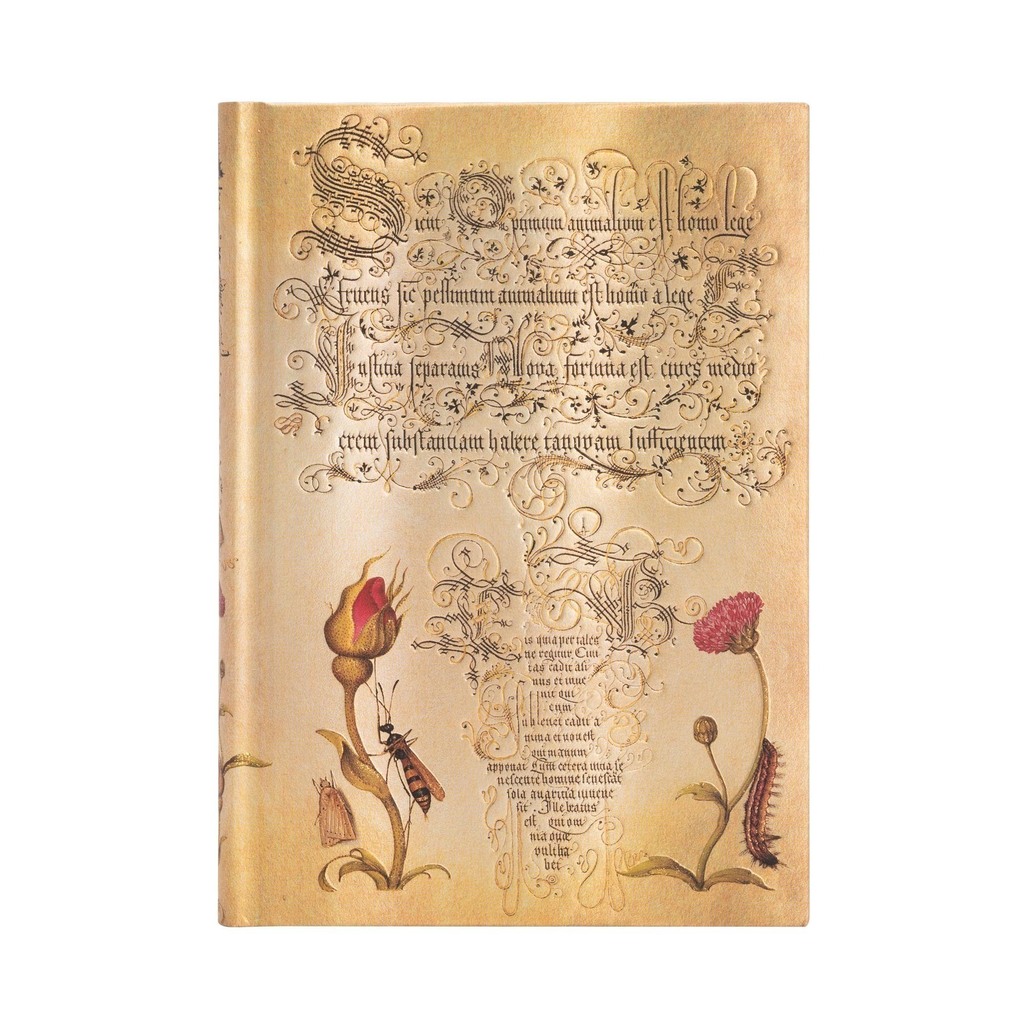 Sicut Optimum animalium est homo lege
Fruens sic pessimum animalium est homo a lege Et
Iustitia separatus Bona fortuna est cives medio
crem substantiam habere tanquam sufficientem
is quia per tales
ne regitur Civi
tas cadit asi
nus et inve
nit qui
eum
Sublevet cadit a
nima et non est
qui manum
apponat Cum cetera vitia se
nescente homine senescat
sola avaritia iuvene
scit. Ille beatus
est qui om
nia quae
vult ha
bet